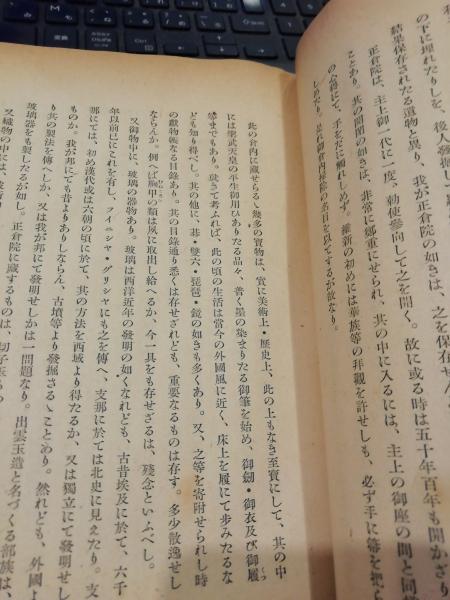 の下に埋れたりしを、後人發掘し
結果保存されたる遺物と異り、我が正倉院の如きは、之を保存せん
正倉院は、主上御一代に一度、勅使參向して之を開く。故に或る時は五十年百年も開かざり
ことあり。其の開閉の如きは、非常に鄭重にせられ、其の中に入るには、主上の御座の間と同樣
の心得にて、手をだに觸れしめず。維新の初めには華族等の拜觀を許せしも、必ず手に箒を把ら
しめたり。是れ御倉內掃除の名目を以てするが故なり。
此の倉內に藏せらるゝ幾多の寶物は、實に美術上・歷史上、此の上もなき至寶にして、其の中
には聖武天皇の平生御用ひありたる品々、普く墨の染まりたる御筆を始め、御劒・御衣及び御履
等までもあり。就きて考ふれば、此の頃の生活は當今の外國風に近く、床上を履にて步みたるな
ども知り得べし。其の他に、碁・雙六・琵琶・鏡の如きも多くあり。又、之等を寄附せられし時
の獻物帳なる目錄あり。其の目錄通り悉くは存せざれども、重要なるものは存す。多少散逸せし
ならんか。例へば胸甲の類は夙に取出し給へるか、今一具をも存せざるは、殘念といふべし。
又御物中に、玻璃の器物あり。玻璃は西洋近年の發明の如くなれども、古昔埃及に於て、六千
年以前已にこれを有し、フィニシャ・グリシャにも之を傳へ、支那に於ては北史に見えたり。支
那にては、初め漢代或は六朝の頃に於て、其の方法を西域より得たるか、又は獨立にて發明せし
ものか。我が邦にても昔よりありしならん、古墳等より發掘さるゝことあり。然れども、外國よ
り其の製法を傳へしか、又は我が邦にて發明せしかは一問題なり。出雲玉造と名づくる部族は、
玻璃器をも製したるが如し。正倉院に藏するものは、切子玉もつ
又織物の中には、